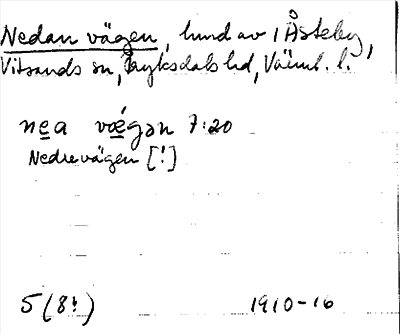 Nedan vägen, lund av 1 Åsteby,
Vitsands sn, Fryksdals hd, Värml. l.
nea vǽgən 7:20
Nedrevägen [!]
5 (8)
1910-16